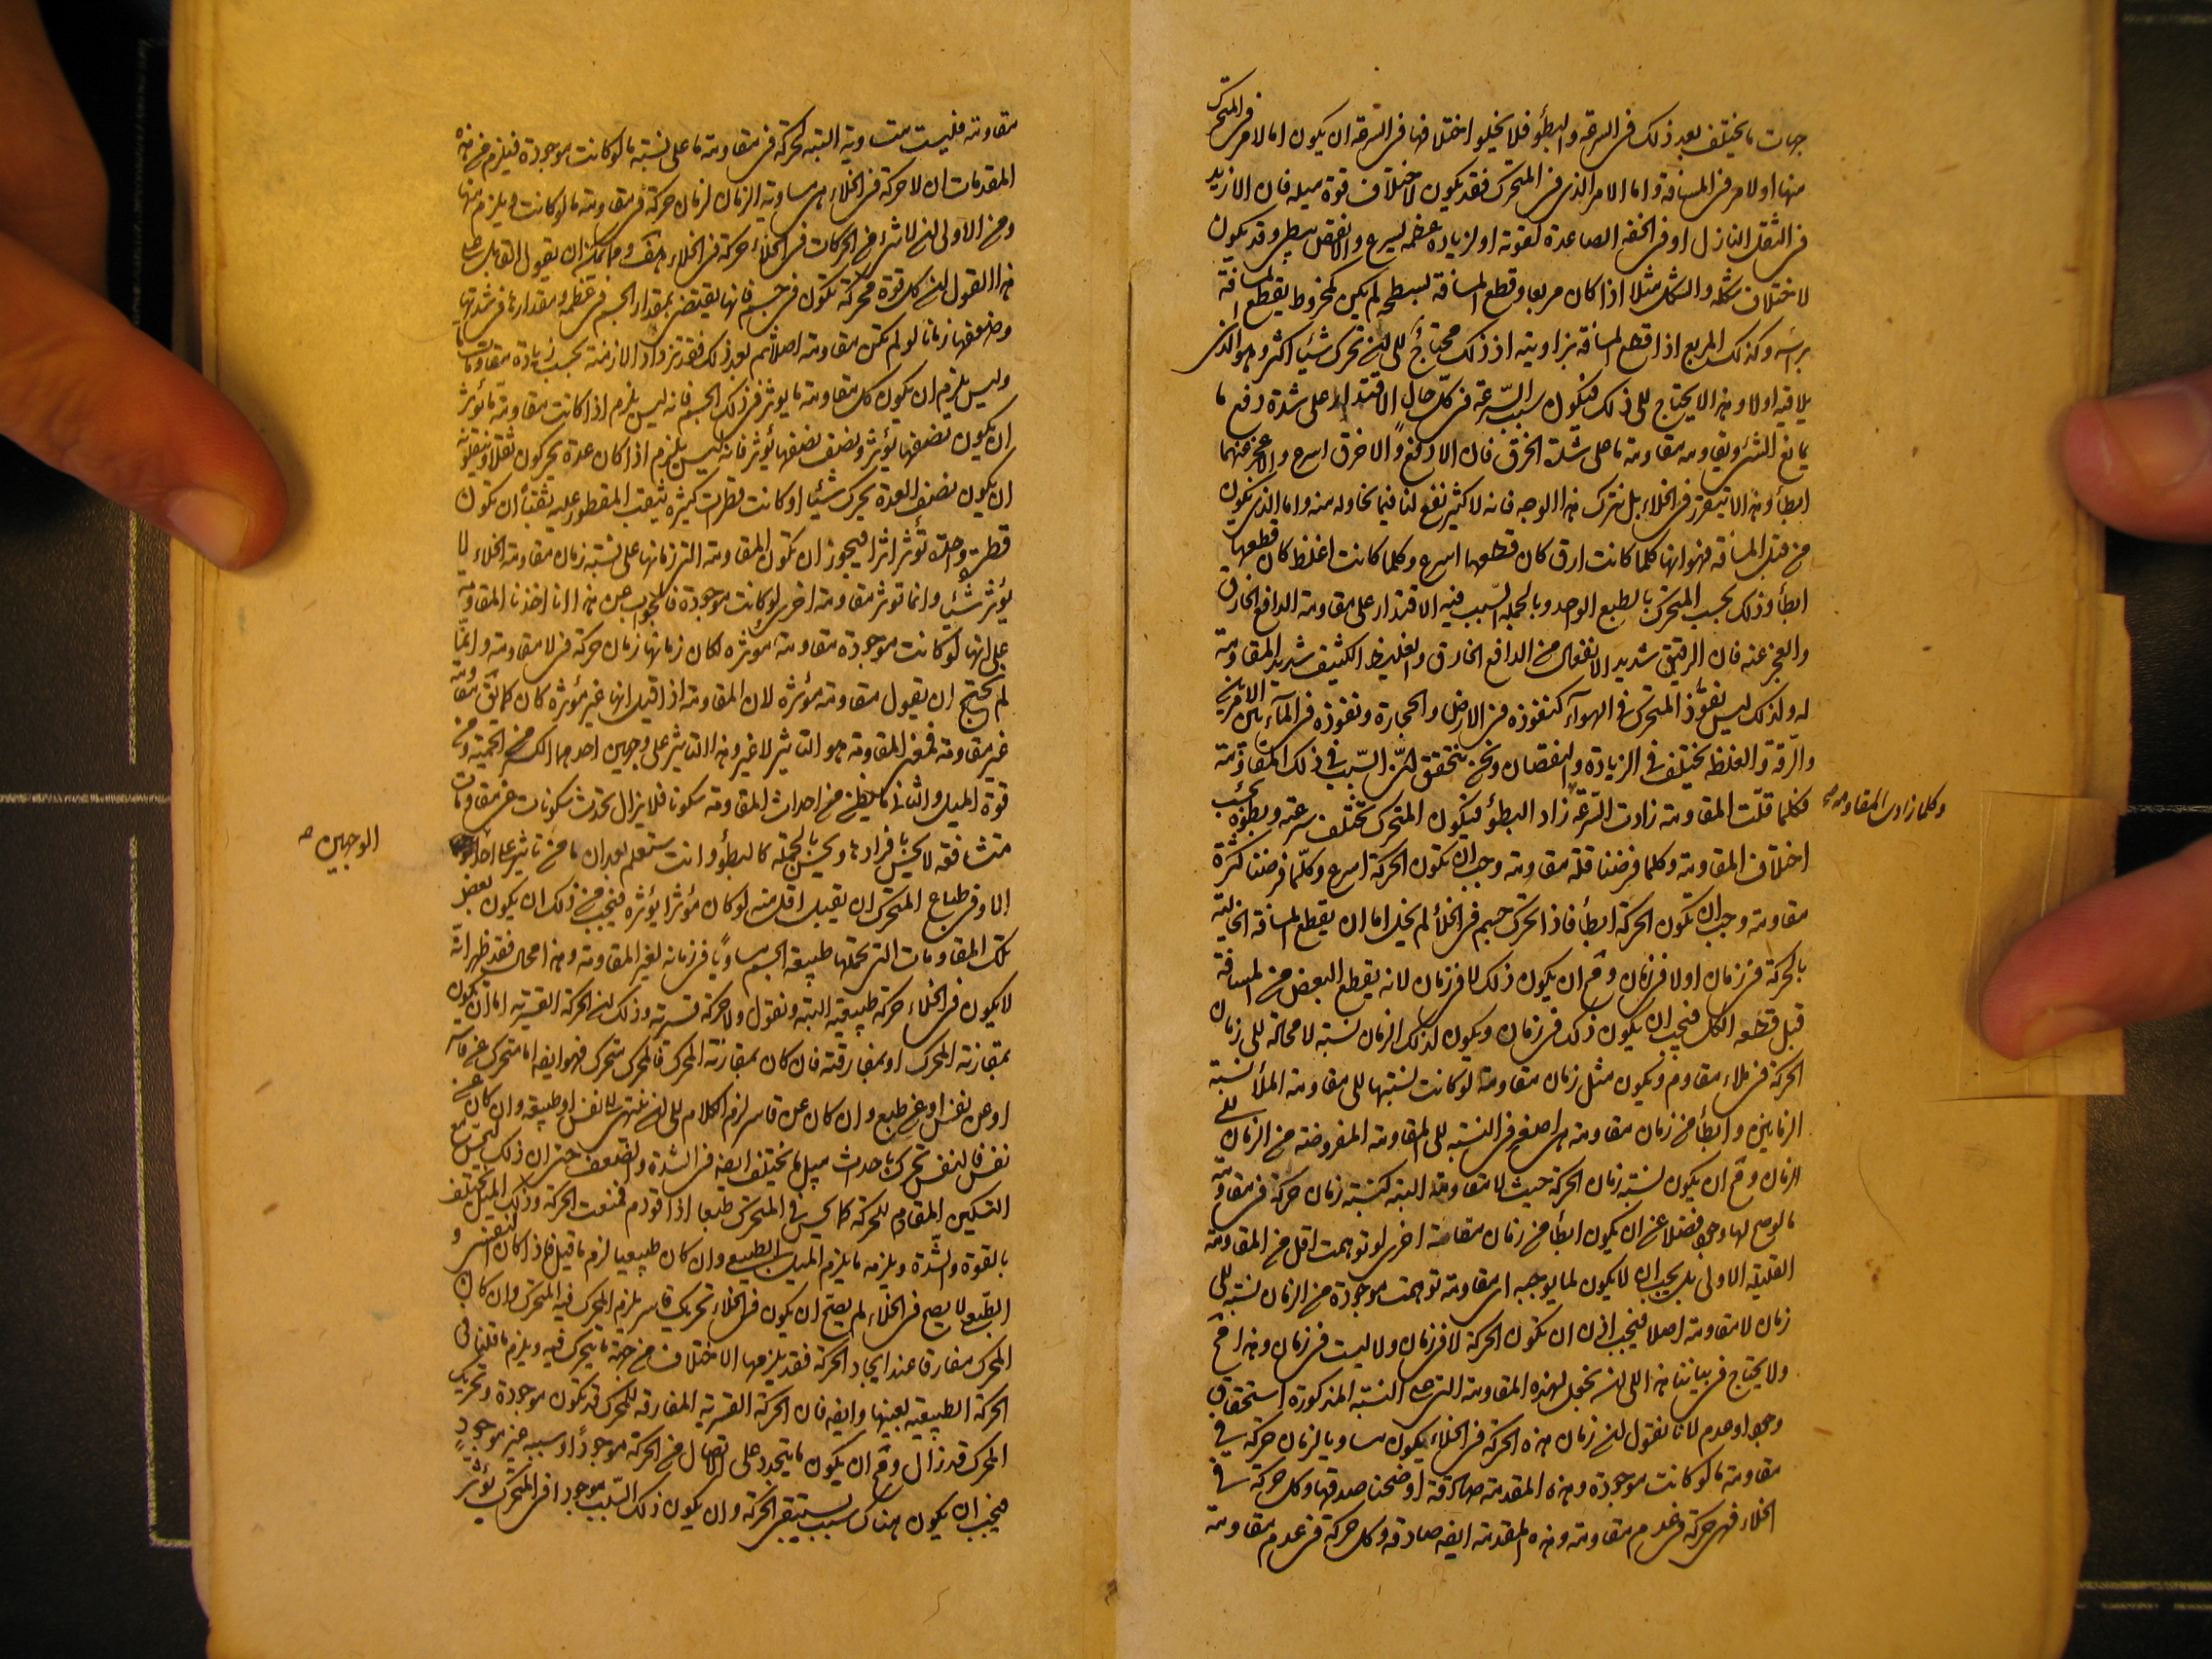 جهات ما يختلف بعد ذلك فى السرعة والبطؤ فلا يخلوا اختلافها فى السرعة ان يكون اما لامر فى المتحرك
منها او لامر فى المسافة واما الامر الذى فى المتحرك فقد يكون لاختلاف قوة ميله فان الازيد
فى الثقل النازل او فى الخفة الصاعدة لقوته او لزيادة عظمه يسرع والانقص يبطئ وقد يكون
لاختلاف شكله والشكل مثلا اذا كان مربعا وقطع المسافة بسطحه لم يكن كمخروط يقطع المسافة
برأسه وكذلك المربع اذا قطع المسافة بزاويته اذ ذلك محتاج الى ان تحرك شيئا اكثر وهو الذى
يلاقيه اولا وهذا لا يحتاج الى ذلك فيكون سبب السرعة فى كل حال الاقتدار على شدة دفع ما
يمانع الشئ ويقاومه مقاومة ما على شدة الخرق فان الادفع والاخرق اسرع والاعجز عنهما
ابطأ وهذا لا يتقرر فى الخلاء بل نترك هذا الوجه فانه لا كثير نفع لنا فيما نحاوله منه واما الذى يكون
من قبل المسافة فهو انها كلما كانت ارق كان قطعها اسرع وكلما كانت اغلظ كان قطعها
ابطأ وذلك بحسب المتحرك بالطبع الواحد وبالجملة السبب فيه الاقتدار على مقاومة الدافع الخارق
والعجز عنه فان الرقيق شديد الانفعال من الدافع الخارق والغليظ الكثيف شديد المقاومة
له ولذلك ليس نفوذ المتحرك فى الهوآء كنفوذه فى الارض والحجارة ونفوذه فى المآء بين الامرين
والرقة والغلظ يختلف فى الزيادة والنقصان ونحن نتحقق ان السبب فى ذلك المقاومة
فكلما قلت المقاومة زادت السرعة زاد البطؤ فيكون المتحرك تختلف سرعته وبطؤه بحسب
وكلما زادت المقاومة صح
اختلاف المقاومة وكلما فرضنا قلة مقاومة وجب ان تكون الحركة اسرع وكلما فرضنا كثرة
مقاومة وجب ان تكون الحركة ابطأ فاذا تحرك جسم فى الخلأ لم يخل اما ان يقطع المسافة الخالية
بالحركة فى زمان او لا فى زمان ومح ان يكون ذلك لا فى زمان لانه يقطع البعض من المسافة
قبل قطعه الكل فيجب ان يكون ذلك فى زمان ويكون لذلك الزمان نسبة لا محالة الى زمان
الحركة فى ملاء مقاوم ويكون مثل زمان مقاومة لو كانت نسبتها الى مقاومة الملأ نسبة
الزمانين وابطأ من زمان مقاومة هى اصغر فى النسبة الى المقاومة المفروضة من الزمان الى
الزمان ومح ان يكون نسبة زمان الحركة حيث لا مقاومة البتة كنسبة زمان حركة فى مقاومة
ما لو صح لها وجود فضلا عن ان يكون ابطأ من زمان مقاومة اخرى لو توهمت اقل من المقاومة
القليلة الاولى بل يجب ان لا يكون لما يوجبه اى مقاومة توهمت موجودة من الزمان نسبة الى
زمان لا مقاومة اصلا فيجب اذن ان تكون الحركة لا فى زمان ولا ليست فى زمان وهذا مح
ولا يحتاج فى بياننا هذا الى ان نجعل لهذه المقاومة التى على النسبة المذكورة استحقاق
وجود او عدم لانا نقول ان زمان هذه الحركة فى الخلاء يكون مساويا لزمان حركة فى
مقاومة ما لو كانت موجودة وهذه المقدمة صادقة اوضحنا صدقها وكل حركة فى
الخلاء فهى حركة فى عدم مقاومة وهذه المقدمة ايضا صادقة وكل حركة فى عدم مقاومة
مقاومة فليست مساوية البتة لحركة فى مقاومة ما على نسبة ما لو كانت موجودة فيلزم من هذه
المقدمات ان لا حركة فى الخلاء هى مساوية الزمان لزمان حركة فى مقاومة ما لو كانت ويلزم منها
ومن الاولى ان لا شئ من الحركات فى الخلاء حركة فى الخلاء هف ومما يمكن ان يقول القائل على
هذا القول ان كل قوة محركة تكون فى جسم فانها يقتضى بمقدار الجسم فى عظمه ومقدارها فى شدتها
وضعفها زمانا لو لم تكن مقاومة اصلا ثم بعد ذلك فقد تزداد الازمنة بحسب زيادة مقاومات ما
وليس يلزم ان يكون كل مقاومة ما يوثر فى ذلك الجسم فانه ليس يلزم اذا كانت مقاومة ما يؤثر
ان يكون نصفها يؤثر ونصف نصفها يؤثر فانه ليس يلزم اذا كان عدة يحركون ثقلا وينقلونه
ان يكون نصف العدة يحرك شيئا او كانت قطرات كثيرة تثقب المقطور عليه ثقبا ان تكون
قطرة واحدة تؤثر اثرا فيجوز ان تكون المقاومة التى زمانها على نسبة زمان مقاومة الخلاء لا
يؤثر شيئا وانما توثر مقاومة اخرى لو كانت موجودة فالجواب عن هذا انا اخذنا المقاومة
على انها لو كانت موجودة مقاومة مؤثرة لكان زمانها زمان حركة فى لا مقاومة وانما
لم نحتج ان نقول مقاومة مؤثرة لان المقاومة اذا قيل انها غير مؤثرة كان كما يق مقاومة
غير مقاومة فمعنى المقاومة هو التاثير لا غير وهذا التاثير على وجهين احدهما الكسر من الحمية ومن
قوة الميل والثانى ما يظن من احداث المقاومة سكونا فلا يزال تحدث سكونات عن مقاومات
متشافعة لا يحس بافرادها ويحس بالجملة كالبطؤ وانت ستعلم بعد ان ما من تاثير على احد
الوجهين صح
الا وفى طباع المتحرك ان يقبل اقل منه لو كان مؤثرا يؤثره فيجب من ذلك ان يكون بعض
تلك المقاومات التى تحتملها طبيعة الجسم مساويا فى زمانه لغير المقاومة وهذا محال فقد ظهر انه
لا يكون فى الخلاء حركة طبيعية البتة ونقول ولا حركة قسرية وذلك ان الحركة القسرية اما ان يكون
بمقارنة المحرك او بمفارقته فان كان بمقارنة المحرك فالمحرك متحرك فهو ايضا اما متحرك عن قاسر
او عن نفس او عن طبع وان كان عن قاسر لزم الكلام الى ان ينتهى الى نفس او طبيعة وان كان عن
نفس فالنفس تحرك باحداث ميل ما يختلف ايضا فى الشدة والضعف حتى ان ذلك ليحس مع
التسكين المقاوم للحركة كما يحس فى المتحرك طبعا اذا قووم فمنعت الحركة وذلك الميل يختلف
بالقوة والشدة ويلزمه ما يلزم الميل الطبيعى وان كان طبيعيا لزم ما قيل فاذا كان النفسى و
الطبيعى لا يصح فى الخلاء لم يصح ان يكون فى الخلاء تحريك قاسر يلزم المحرك فيه المتحرك وان كان
المحرك مفارقا عند ايجاد الحركة فقد يلزمها الاختلاف من جهة ما يتحرك فيه ويلزم ما قلنا فى
الحركة الطبيعية بعينها وايضا فان الحركة القسرية المفارقة للمحرك قد تكون موجودة وتحريك
المحرك قد زال ومح ان يكون ما يتجدد على الاتصال من الحركة موجودا وسببه غير موجود
فيجب ان يكون هناك سبب يستبقى الحركة وان يكون ذلك السبب موجودا فى المتحرك يؤثر